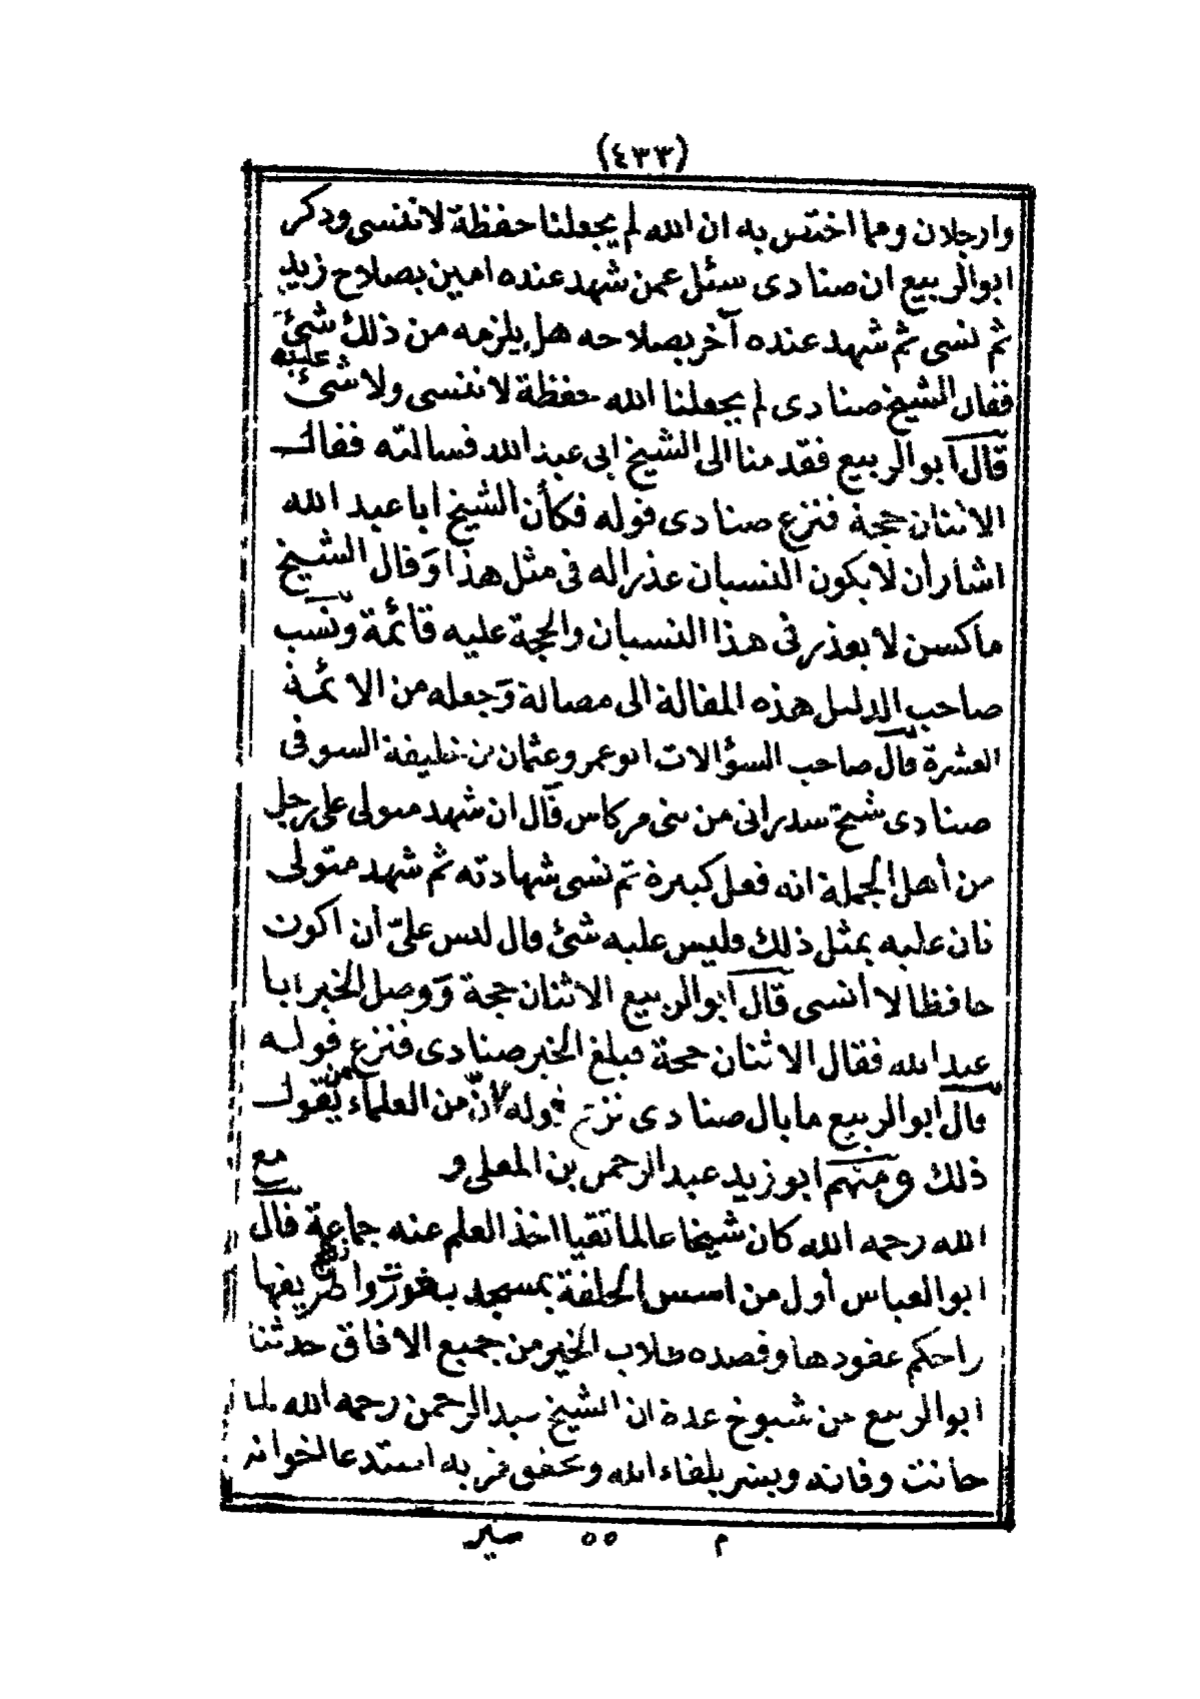 (٤٣٣)
وارجلان ومما اختص به ان الله لم يجعلنا حفظة لا ننسى وذكر
ابو الربيع ان صنادى سئل عمن شهد عنده امين بصلاح زيد
ثم نسى ثم شهد عنده آخر بصلاحه هل يلزمه من ذلك شئ
فقال الشيخ صنادى لم يجعلنا الله حفظة لا ننسى ولا شئ عليه
قال ابو الربيع فقدمنا الى الشيخ ابى عبد الله فسالته فقال
الاثنان حجة فنزع صنادى قوله فكأن الشيخ ابا عبد الله
اشار أن لا يكون النسيان عذرا له فى مثل هذا وقال الشيخ
ماكسن لا يعذر فى هذا النسيان والحجة عليه قائمة ونسب
صاحب الدليل هذه المقالة الى مصالة وجعله من الائمة
العشرة قال صاحب السؤالات ابو عمر وعثمان بن خليفة السوفى
صنادى شيخ سدرانى من بنى مركاس قال ان شهد متولى على رجل
من أهل الجملة انه فعل كبيرة ثم نسى شهادته ثم شهد متولى
ثان عليه بمثل ذلك فليس عليه شئ وقال ليس علىّ أن اكون
حافظا لا أنسى قال ابو الربيع الاثنان حجة ووصل الخبر ابا
عبد الله فقال الاثنان حجة فبلغ الخبر صنادى فنزع قوله
قال ابو الربيع ما بال صنادى نزع قوله لأنّ من العلماء من يقول
ذلك ومنهم ابو زيد عبد الرحمن بن المعلى و
الله رحمه الله كان شيخا عالما تقيا اخذ العلم عنه جماعة قال
ابو العباس أول من اسس الحلقة بمسجد بتغورت واطريفها
راحكم عقودها وقصده طلاب الخير من جميع الافاق حدثنا
ابو الربيع عن شيوخ عدة ان الشيخ عبد الرحمن رحمه الله لما
حانت وفاته وبشر بلقاء الله وتحقق قربه استدعا اخوانه
م ٥٥ سير